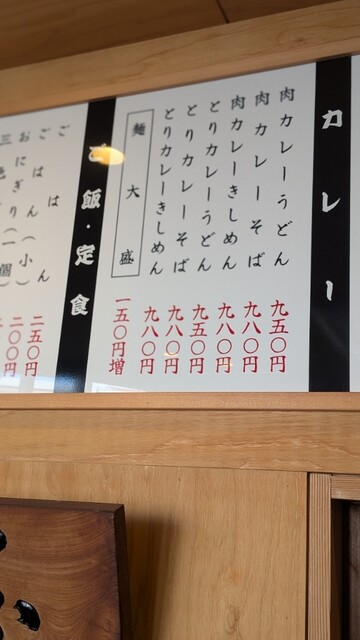 カレー
肉カレーうどん 九五〇円
肉カレーそば 九八〇円
肉カレーきしめん 九八〇円
とりカレーうどん 九五〇円
とりカレーそば 九八〇円
とりカレーきしめん 九八〇円
麺大盛 一五〇円増
ご飯・定食
ごはん 二五〇円
ごはん(小) 二〇〇円
おにぎり(一個)
三色